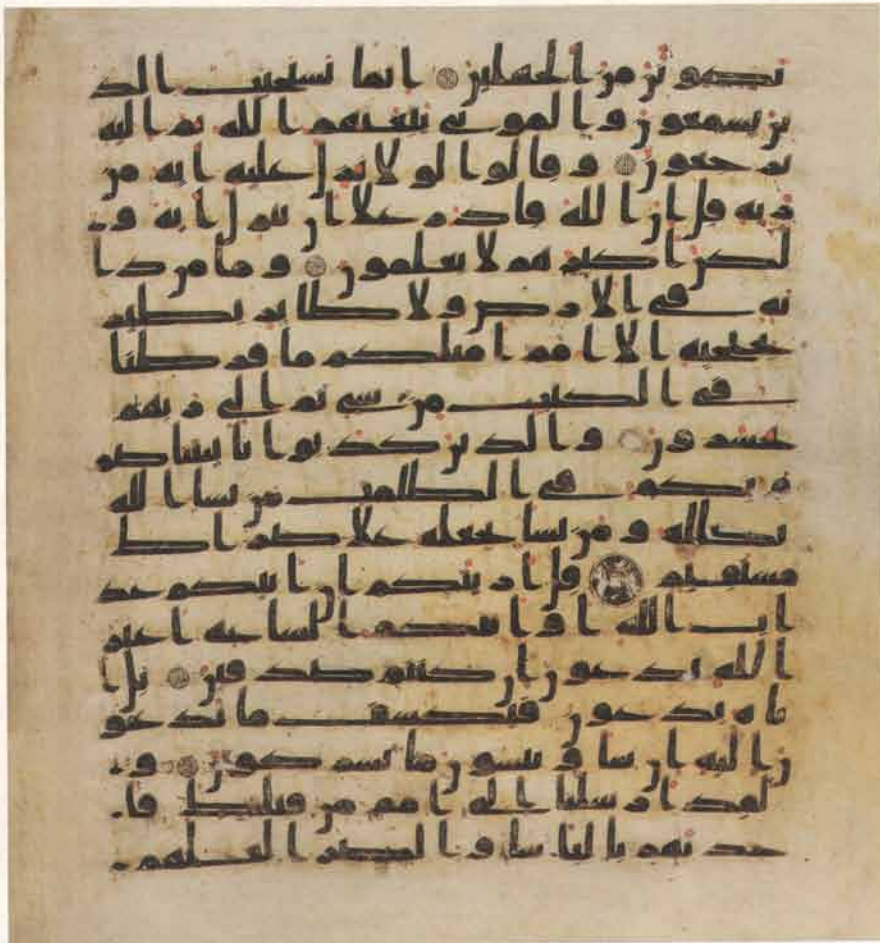 تكونن من الجهلين انما يستجيب الذ
ين يسمعون والموتى يبعثهم الله ثم اليه
يرجعون وقالوا لولا نزل عليه اية من
ربه قل ان الله قادر علا ان ينزل اية و
لكن اكثرهم لا يعلمون وما من دا
بة في الارض ولا طاير يطير
بجنحيه الا امم امثلكم ما فرطنا
في الكتب من شي ثم الى ربهم
يحشرون والذين كذبوا بايتنا صم
وبكم في الظلمت من يشا الله
يضلله ومن يشا يجعله علا صراط
مستقيم قل اريتكم ان اتيكم عذ
اب الله او اتتكم الساعة اغير
الله تدعون ان كنتم صدقين بل ا
ياه تدعون فيكشف ما تدعو
ن اليه ان شا وتنسون ما تشركون و
لقد ارسلنا الى امم من قبلك فا
خذنهم بالباسا والضرا لعلهم